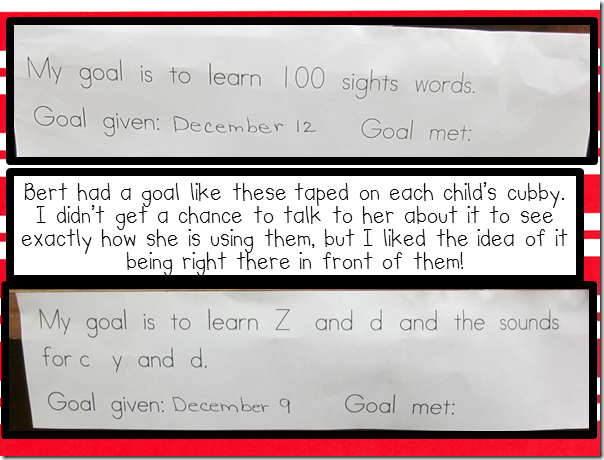 My goal is to learn 100 sights words.
Goal given: December 12 Goal met:
Bert had a goal like these taped on each child's cubby.
I didn't get a chance to talk to her about it to see
exactly how she is using them, but I liked the idea of it
being right there in front of them!
My goal is to learn Z and d and the sounds
for c y and d.
Goal given: December 9 Goal met: